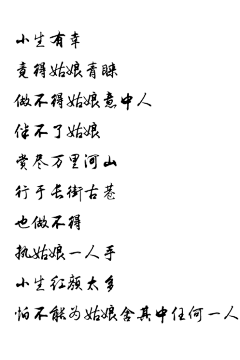 小生有幸
竟得姑娘青睐
做不得姑娘意中人
伴不了姑娘
赏尽万里河山
行于长街古巷
也做不得
执姑娘一人手
小生红颜太多
怕不能为姑娘舍其中任何一人